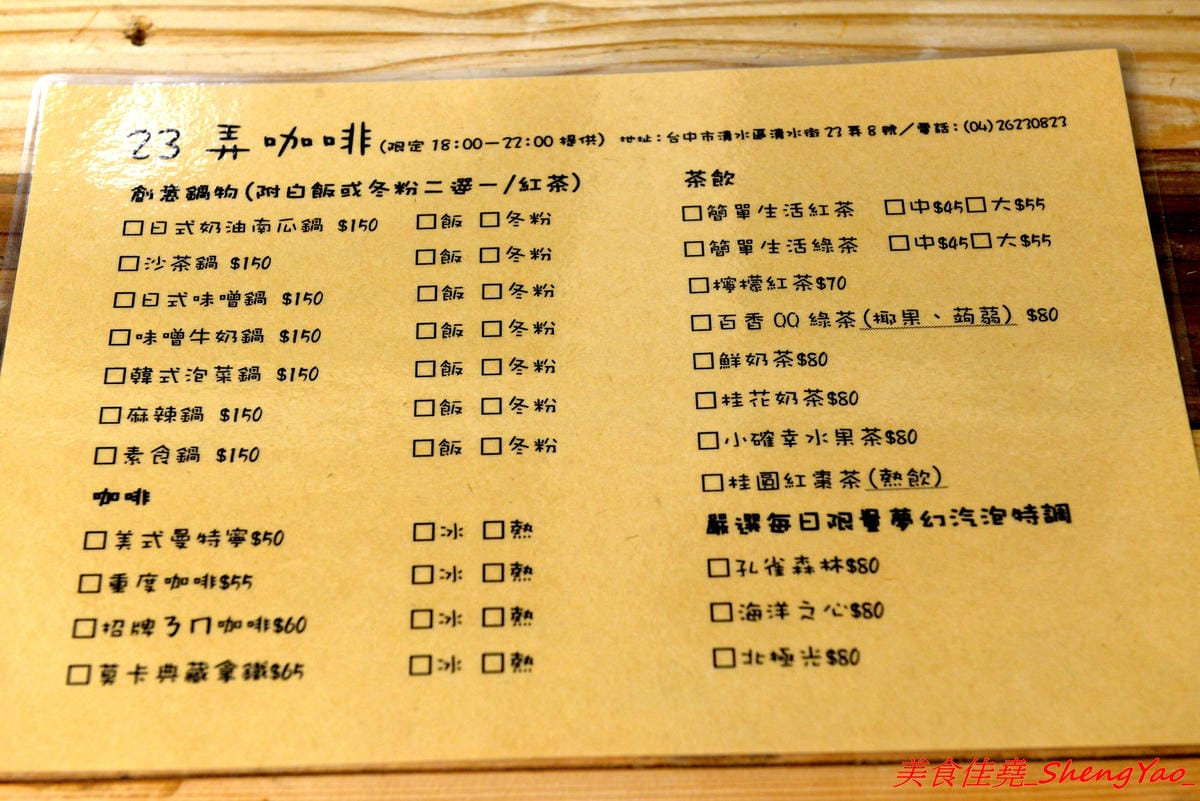 23 弄咖啡(限定 18:00－22:00 提供) 地址：台中市清水區清水街 23 弄 8 號／電話：(04) 26230823
創意鍋物(附白飯或冬粉二選一/紅茶)
□日式奶油南瓜鍋 $150 □飯 □冬粉
□沙茶鍋 $150 □飯 □冬粉
□日式味噌鍋 $150 □飯 □冬粉
□味噌牛奶鍋 $150 □飯 □冬粉
□韓式泡菜鍋 $150 □飯 □冬粉
□麻辣鍋 $150 □飯 □冬粉
□素食鍋 $150 □飯 □冬粉
咖啡
□美式曼特寧$50 □冰 □熱
□重度咖啡$55 □冰 □熱
□招牌ㄋㄇ咖啡$60 □冰 □熱
□莫卡典藏拿鐵$65 □冰 □熱
茶飲
□簡單生活紅茶 □中$45□大$55
□簡單生活綠茶 □中$45□大$55
□檸檬紅茶$70
□百香 QQ 綠茶(椰果、蒟蒻) $80
□鮮奶茶$80
□桂花奶茶$80
□小確幸水果茶$80
□桂圓紅棗茶(熱飲)
嚴選每日限量夢幻汽泡特調
□孔雀森林$80
□海洋之心$80
□北極光$80
美食佳堯_ShengYao_